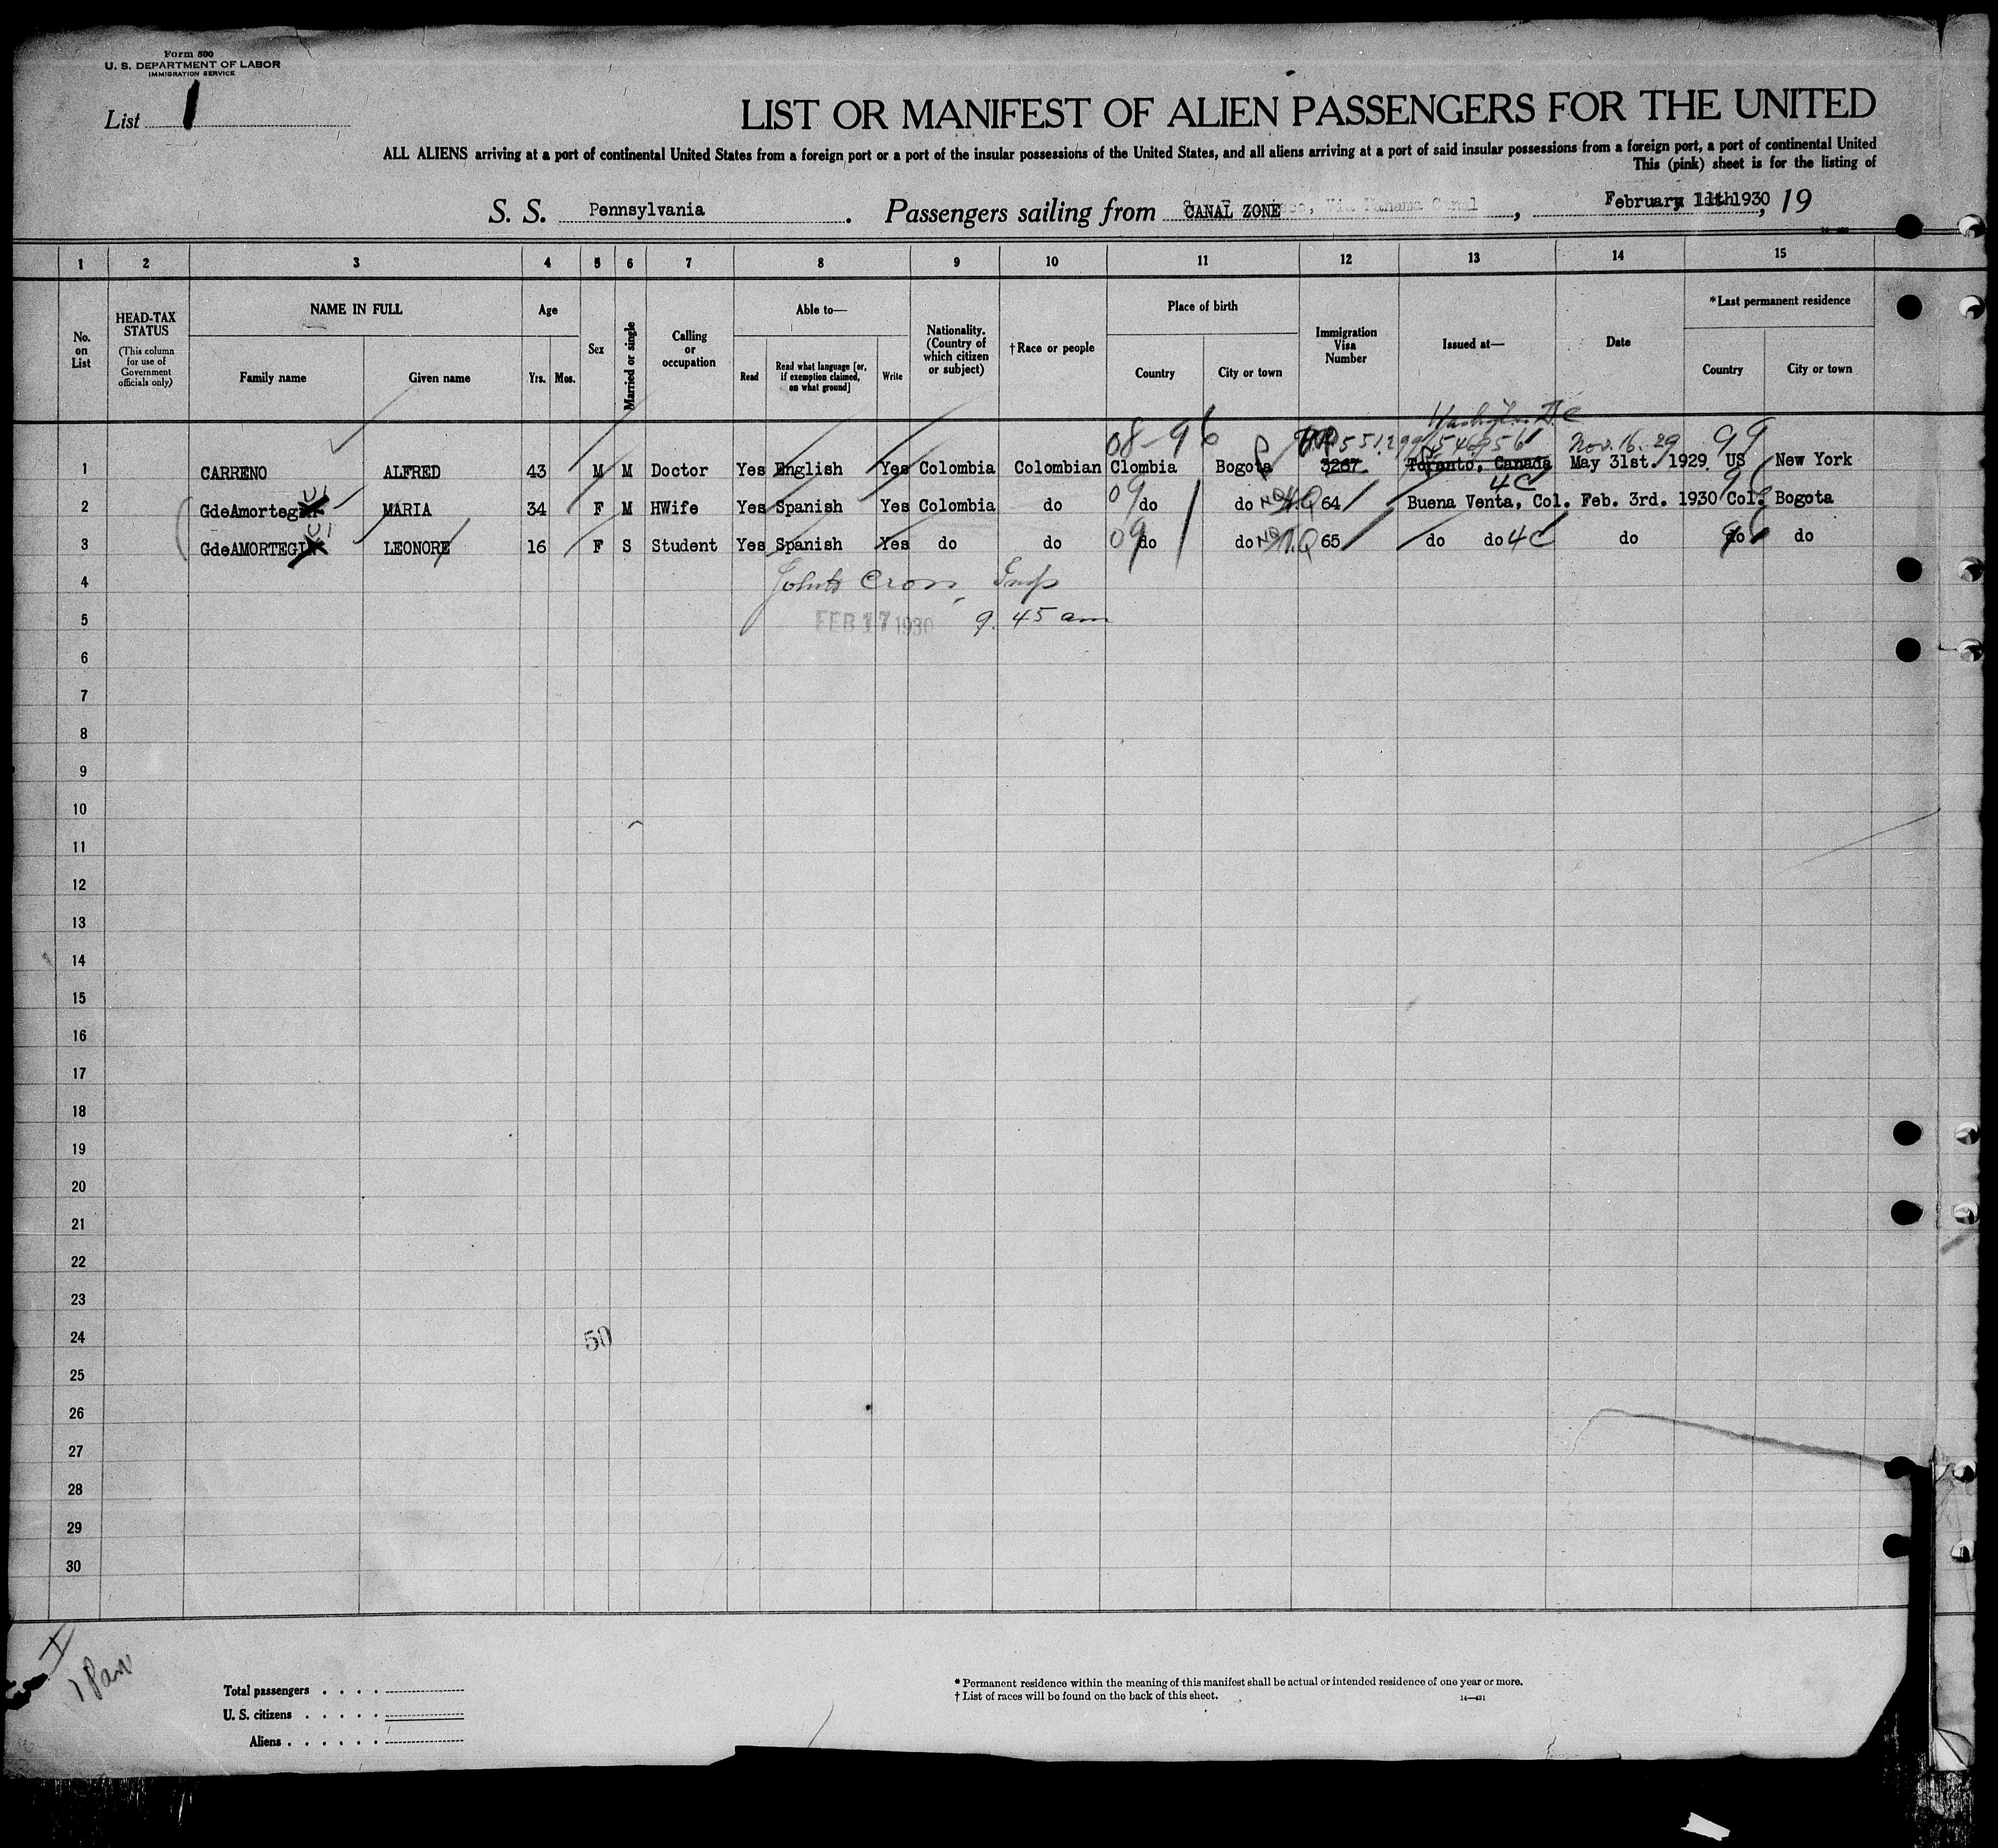 Form 500
U. S. DEPARTMENT OF LABOR
IMMIGRATION SERVICE
List 1
LIST OR MANIFEST OF ALIEN PASSENGERS FOR THE UNITED
ALL ALIENS arriving at a port of continental United States from a foreign port or a port of the insular possessions of the United States, and all aliens arriving at a port of said insular possessions from a foreign port, a port of continental United
This (pink) sheet is for the listing of
S. S. Pennsylvania. Passengers sailing from CANAL ZONE, Via Panama Canal, February 11th 1930, 19
1 2 3 4 5 6 7 8 9 10 11 12 13 14 15
No. on List
HEAD-TAX STATUS
(This column for use of Government officials only)
NAME IN FULL
Family name
Given name
Age
Yrs. Mos.
Sex
Married or single
Calling or occupation
Able to—
Read
Read what language [or, if exemption claimed, on what ground]
Write
Nationality. (Country of which citizen or subject)
†Race or people
Place of birth
Country
City or town
Immigration Visa Number
Issued at—
Date
*Last permanent residence
Country
City or town
Washington D C
08-96 551299 Nov. 16. 29 99
1 CARRENO ALFRED 43 M M Doctor Yes English Yes Colombia Colombian Clombia Bogota 3267. Toronto, Canada May 31st. 1929 US New York
4C
2 GdeAmortegui MARIA 34 F M HWife Yes Spanish Yes Colombia do 09 do do NQ 64 Buena Venta, Col. Feb. 3rd. 1930 Col. Bogota
3 GdeAMORTEGUI LEONORE 16 F S Student Yes Spanish Yes do do 09 do do NQ 65 do do 4C do do do
4 John Cross, Insp
5 FEB 17 1930 9. 45 am
6
7
8
9
10
11
12
13
14
15
16
17
18
19
20
21
22
23
24 50
25
26
27
28
29
30
Total passengers . . . .
U. S. citizens . . . . .
Aliens . . . . . .
* Permanent residence within the meaning of this manifest shall be actual or intended residence of one year or more.
† List of races will be found on the back of this sheet.
14—431